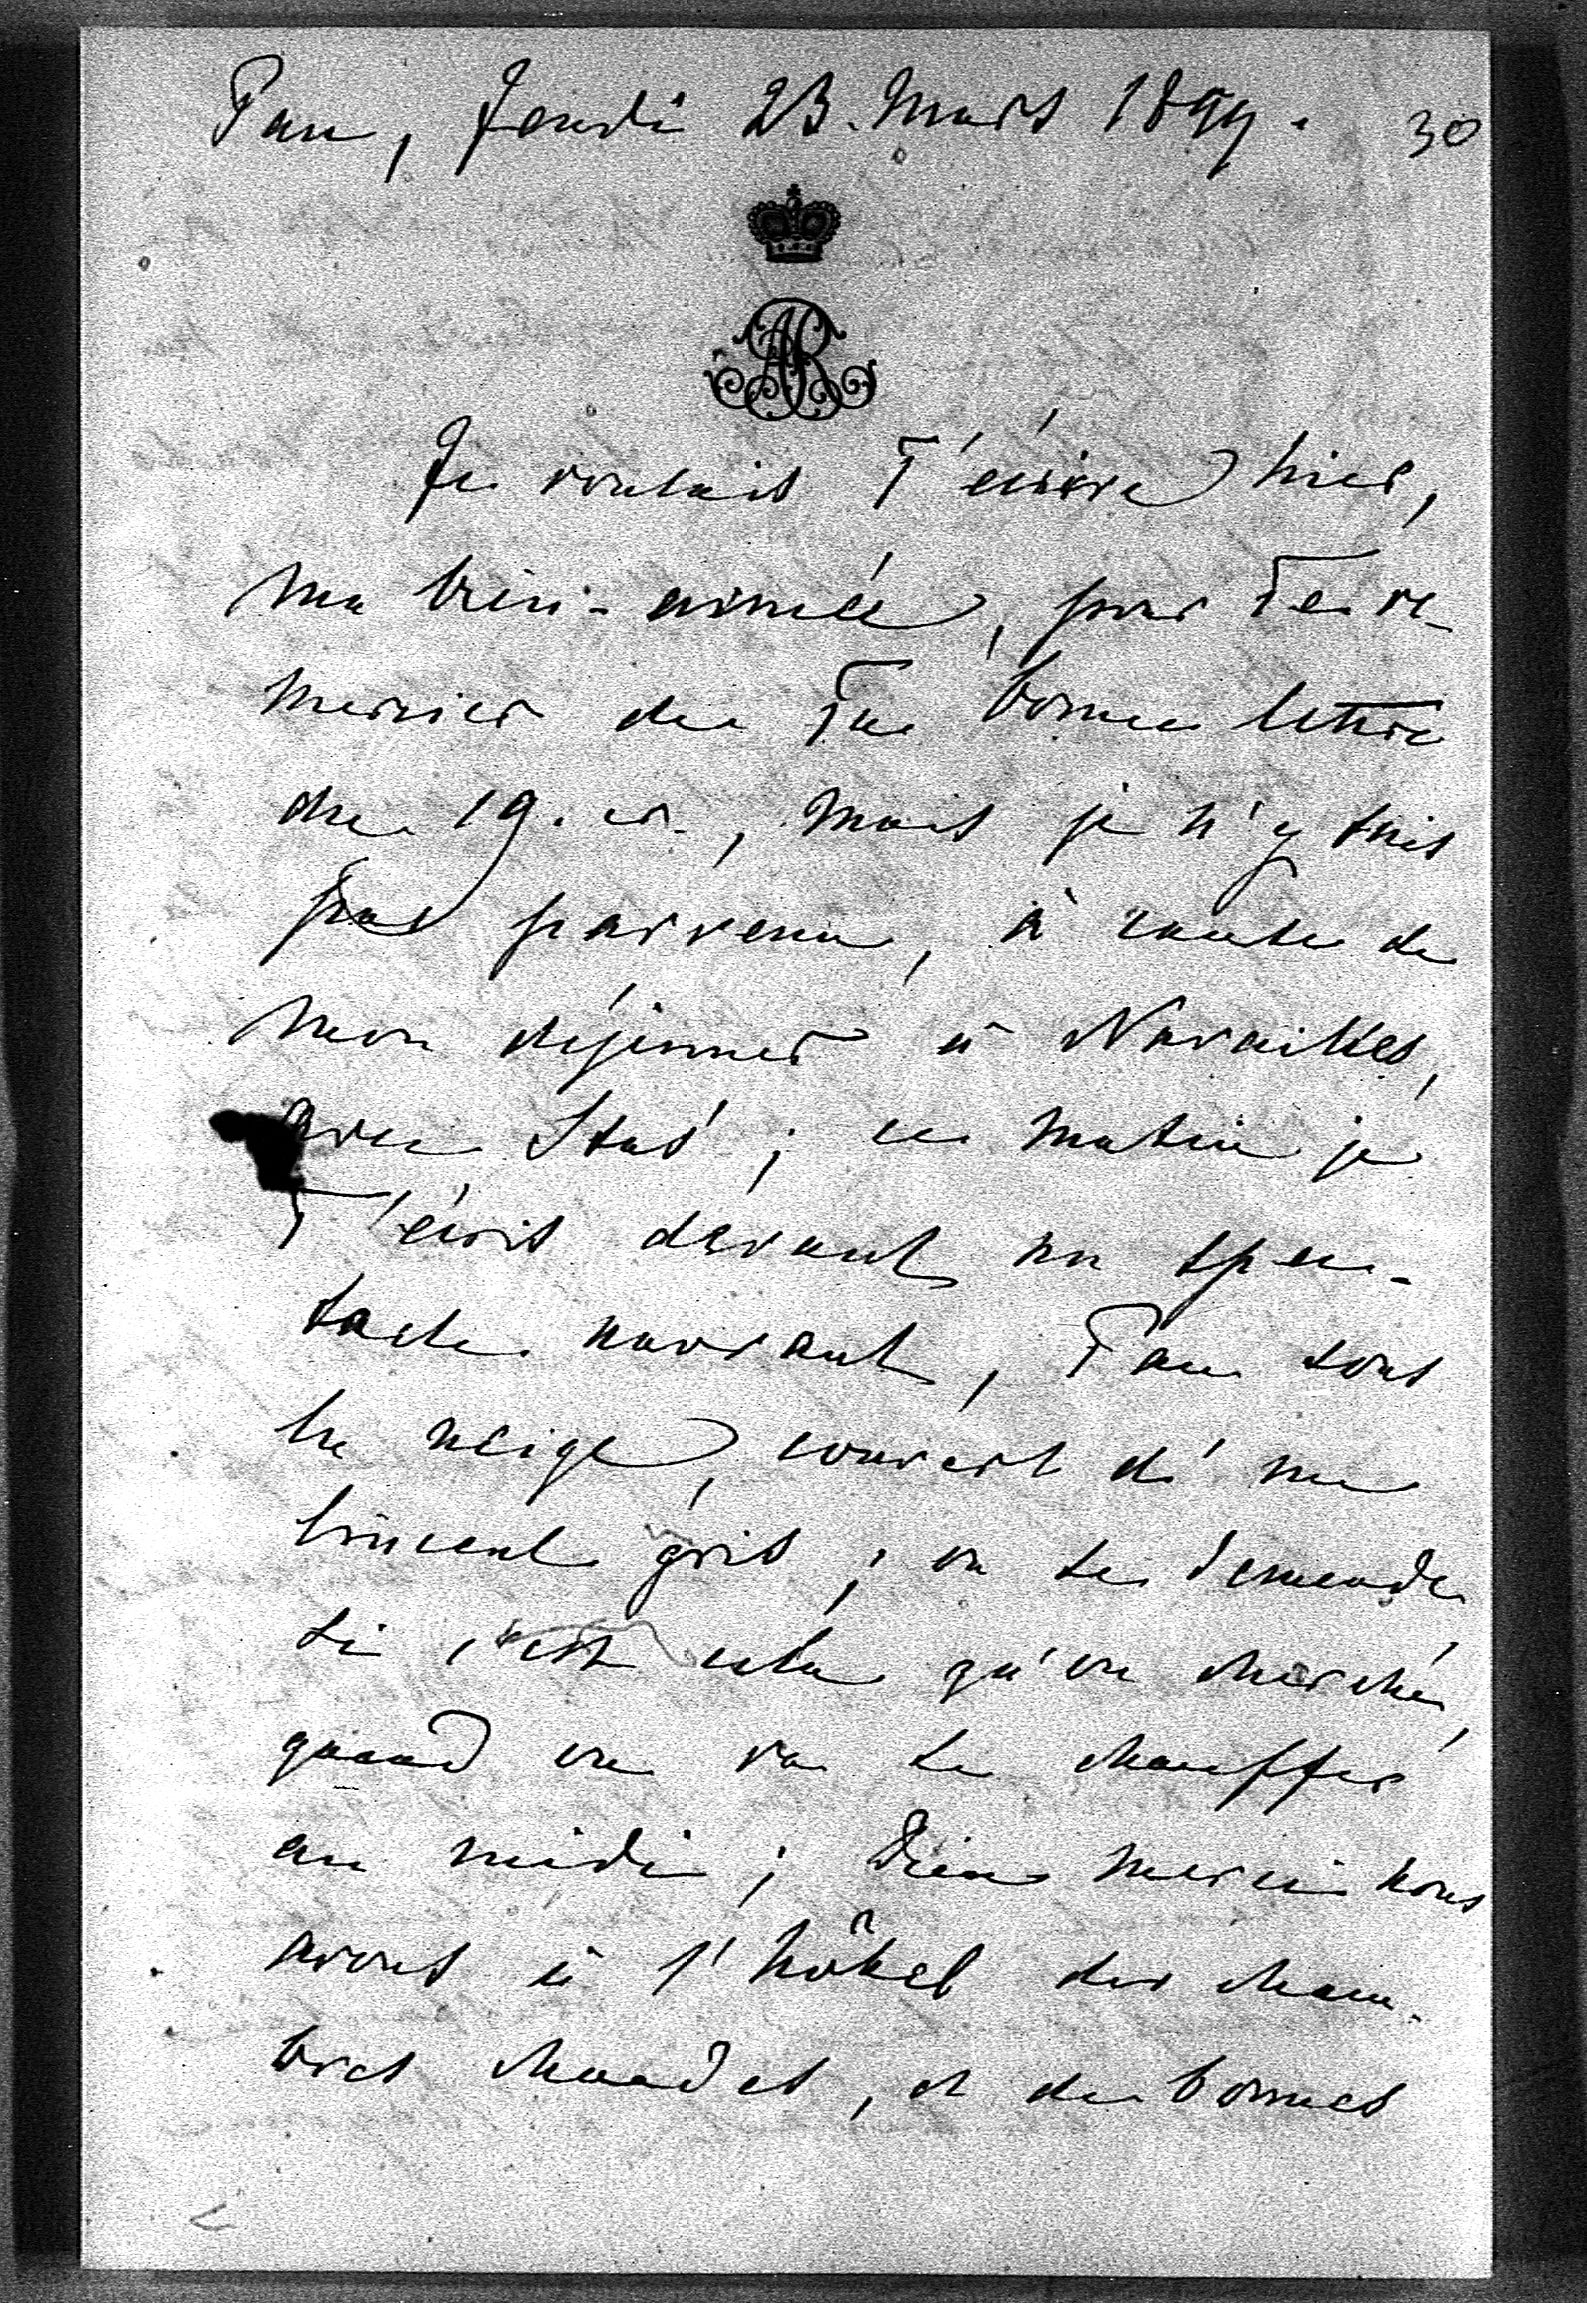 Pau, Jeudi 23. Mars 1899.
30
AR
Je voulais T'écrire hier,
ma bien-aimée, pour Te re-
mercier de Ta bonne lettre
du 19. cr., mais je n'y suis
pas parvenu, à cause de
mon déjeuner à Navailles,
avec Stas'; ce matin je
T'écris devant un spec-
tacle navrant, Pau sous
la neige, couvert d'un
linceul gris; on se demande
si c'est cela qu'on cherche,
quand on va se chauffer
au midi; Dieu merci nous
avons à l'hôtel des cham-
bres chaudes, et de bonnes